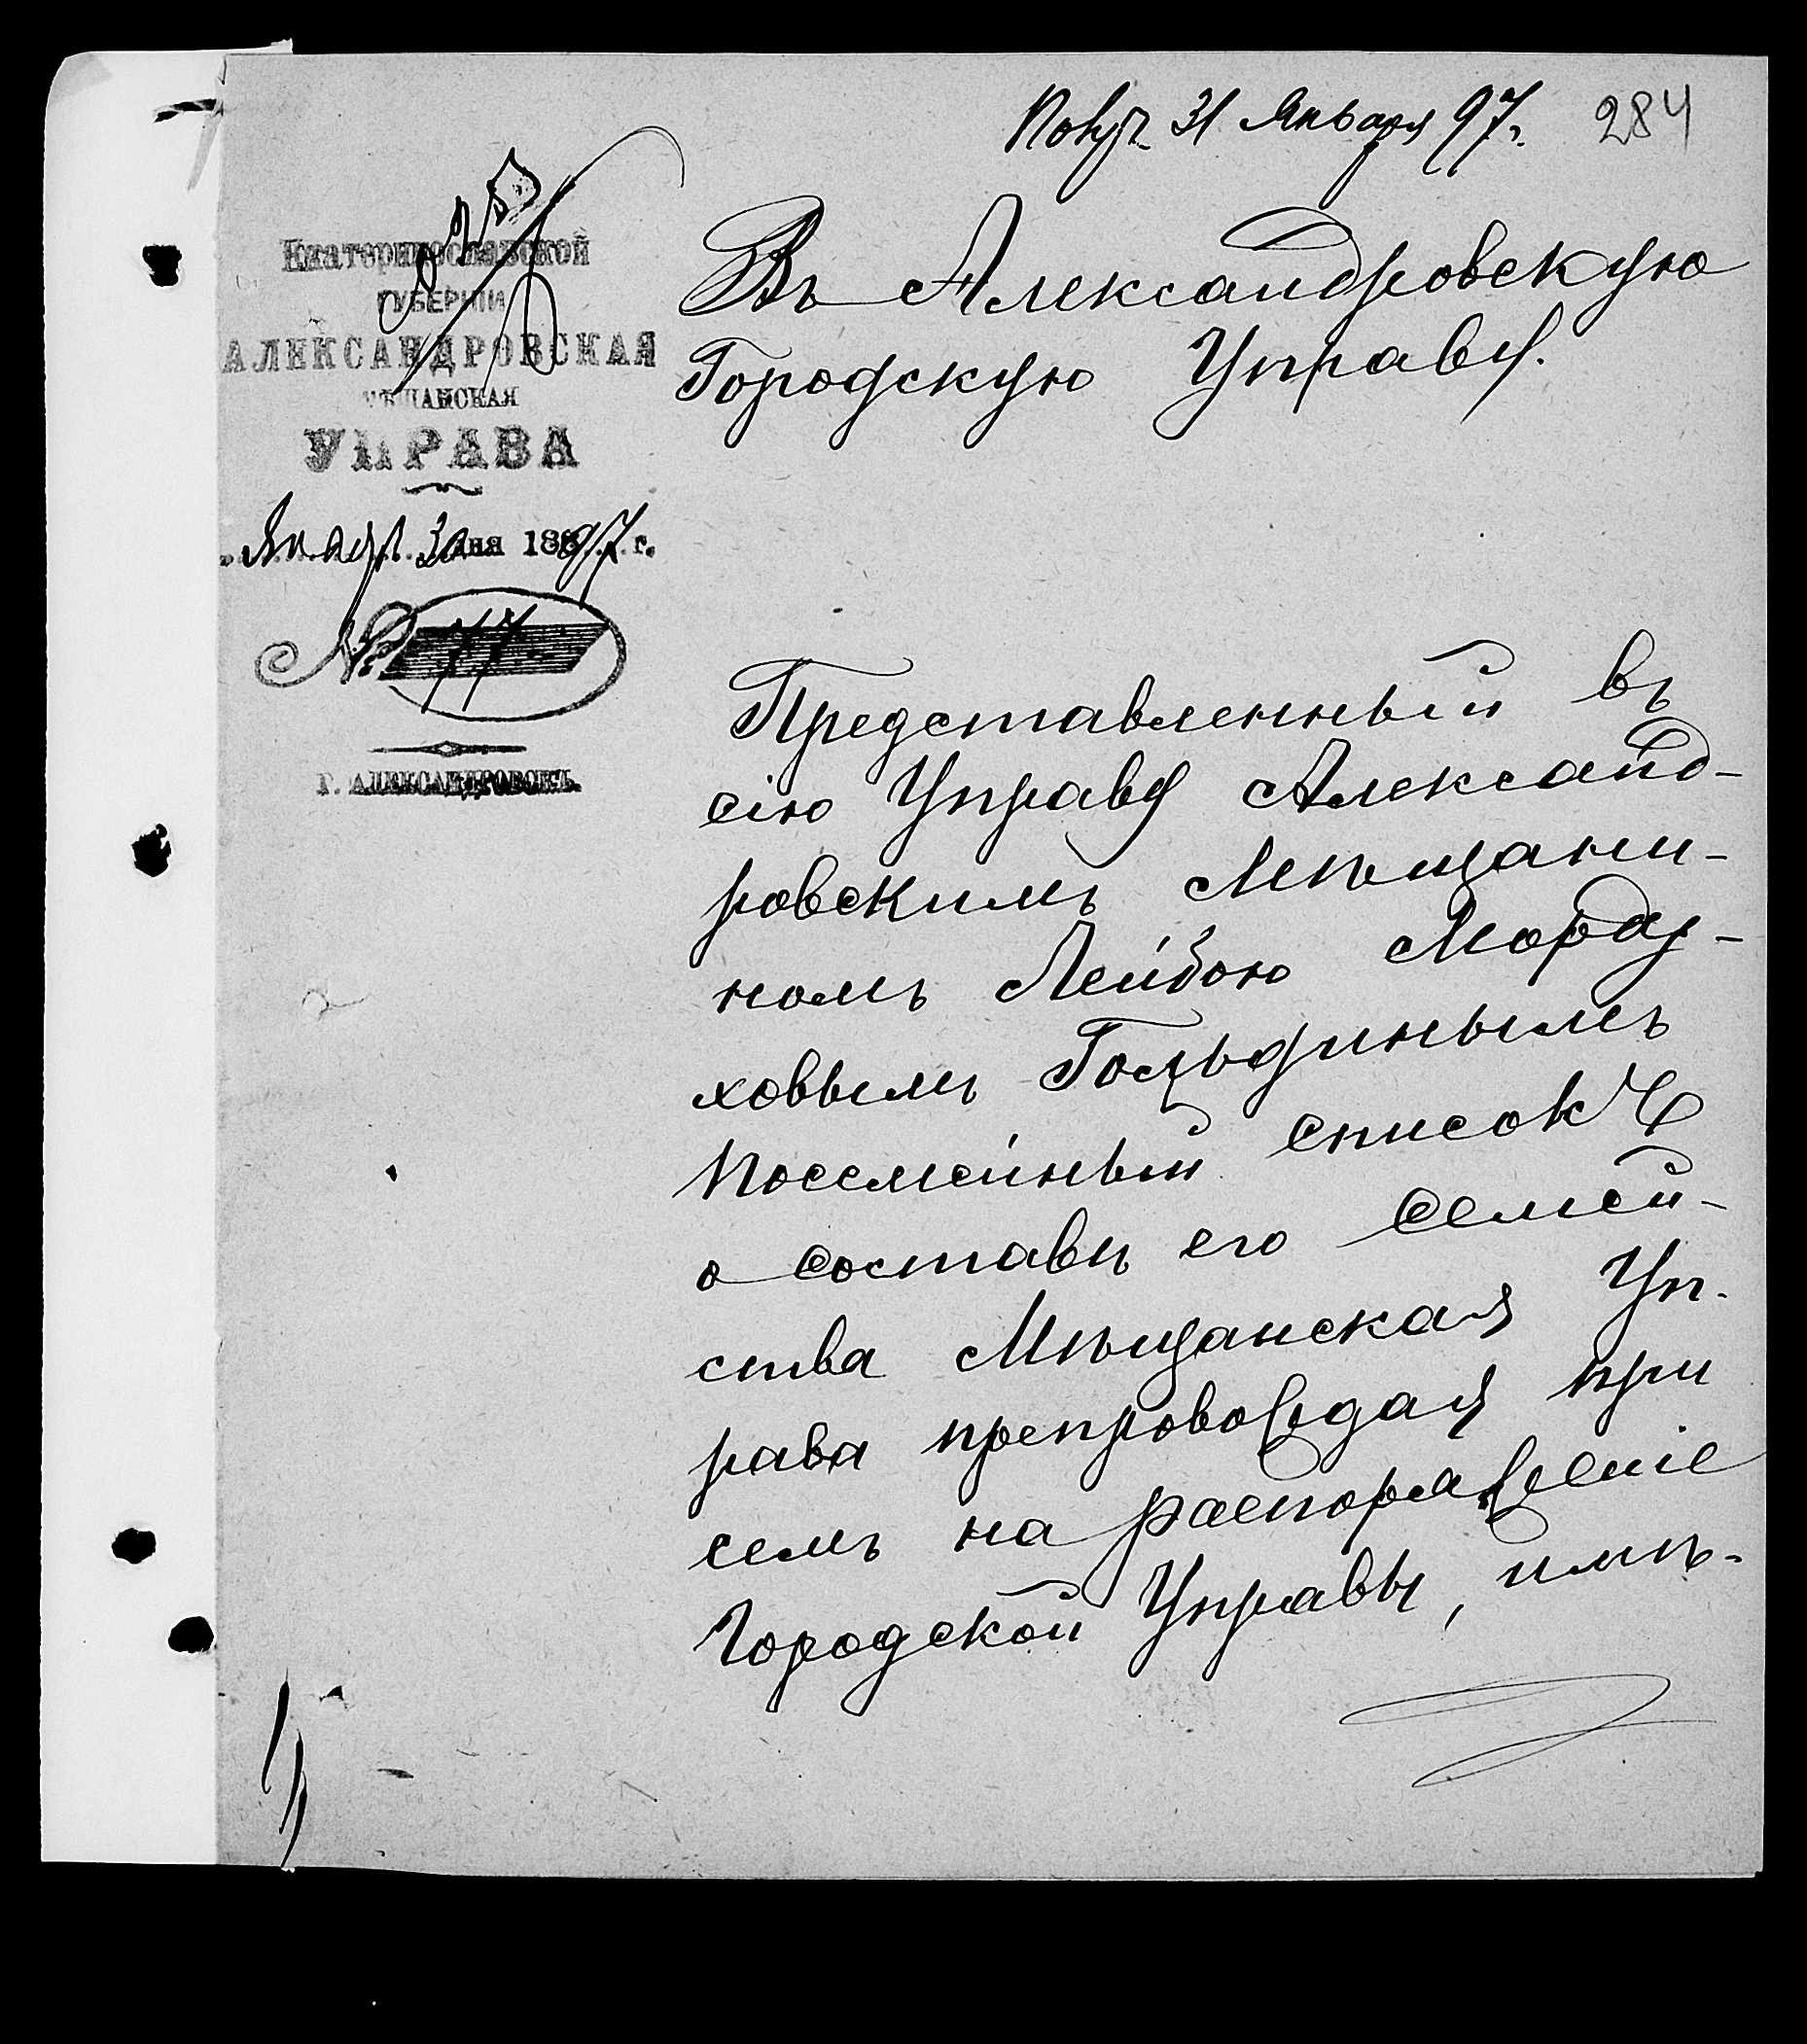 Получ 31 Января 97 г. 284
Екатеринославской
ГУБЕРНІИ
АЛЕКСАНДРОВСКАЯ
МѢЩАНСКАЯ
УПРАВА
Январ. 30 дня 1897 г.
№ 77
Г. АЛЕКСАНДРОВСКЪ.
Въ Александровскую
Городскую Управу.
Представленный въ
сію Управу Александ-
ровскимъ Мѣщани-
номъ Лейбою Морду-
ховымъ Гольдинымъ
посемейный списокъ
о составѣ его семей-
ства Мѣщанская Уп-
рава препровождая при
семъ на распоряженіе
Городской Управы, имѣ-